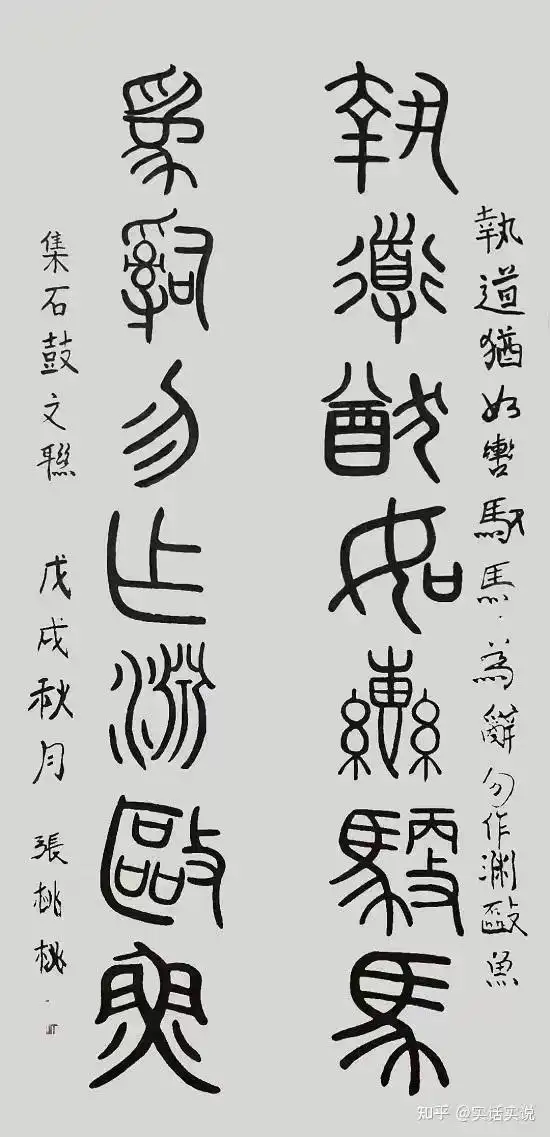 執道猶如轡馭馬、為辭勿作渊敺魚
執道猷如轡馭馬
為辭勿乍淵敺魚
集石鼓文聯 戊戌秋月 張桃桃
知乎 @实话实说